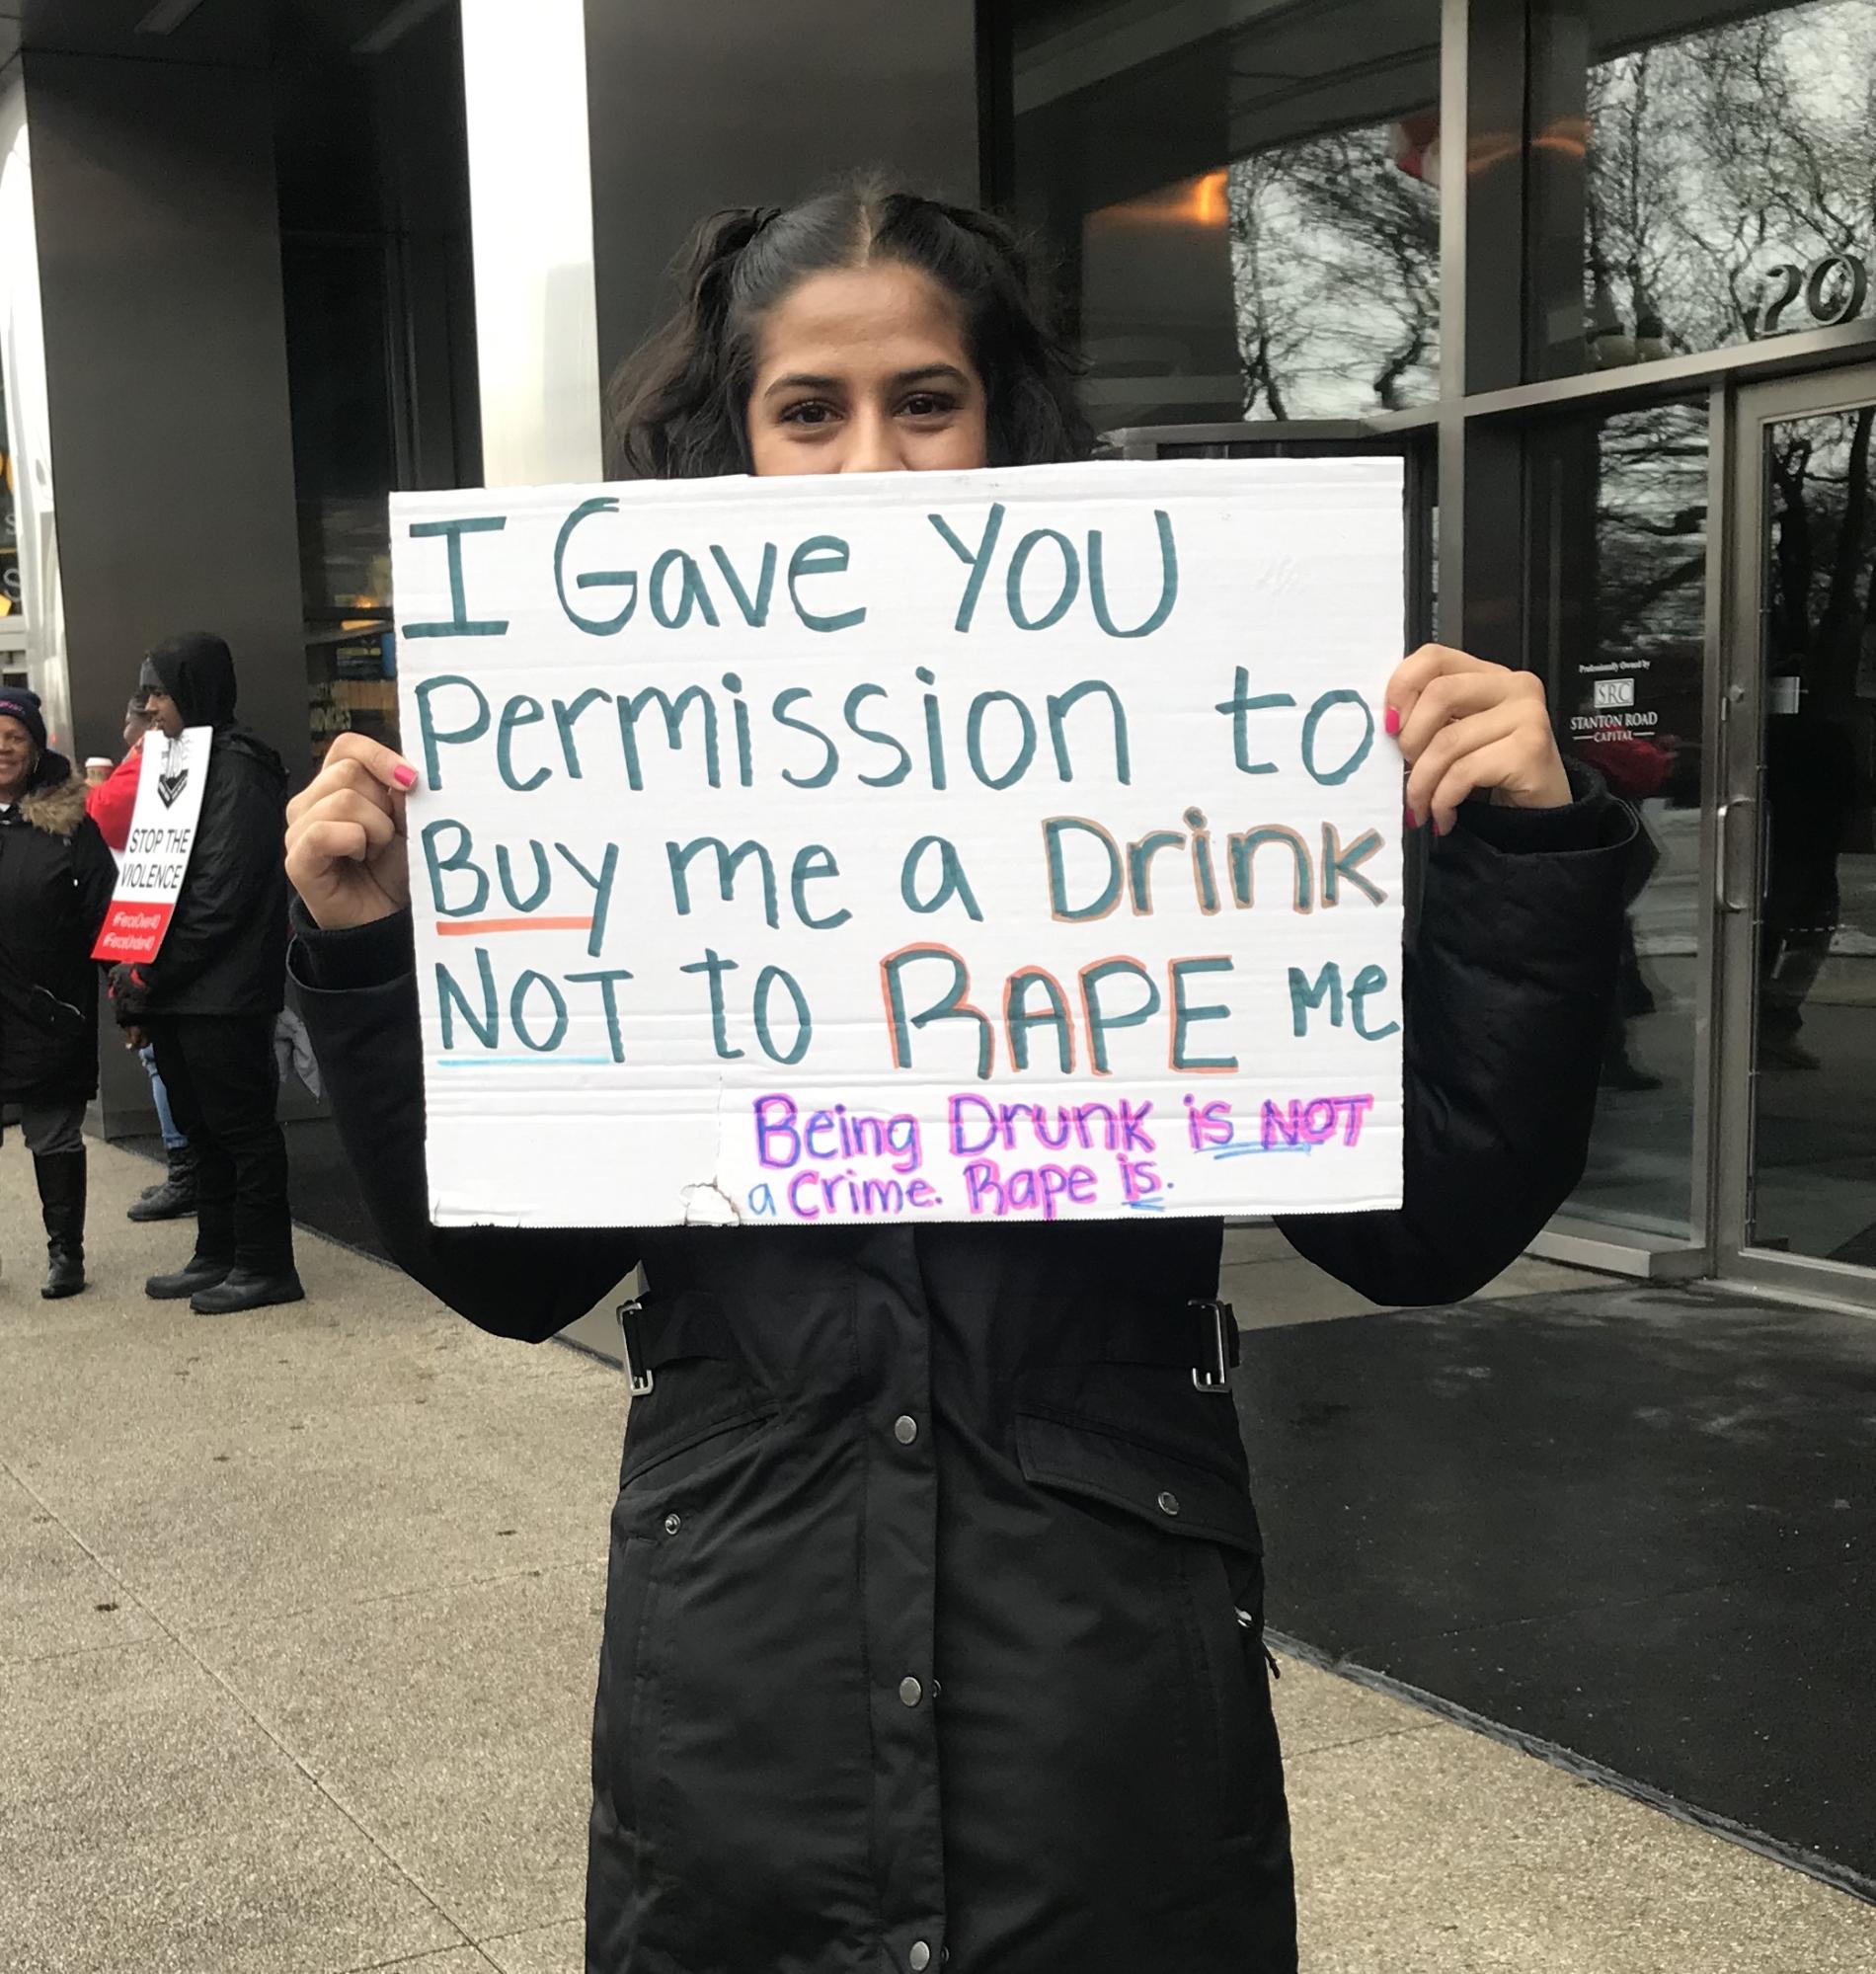 I Gave YOU
Permission to
Buy me a Drink
NOT to RAPE Me
Being Drunk is NOT
a Crime. Rape is.
STOP THE
VIOLENCE
#FierceOver40
#FierceUnder40
20
Professionally Owned by
SRC
STANTON ROAD
CAPITAL